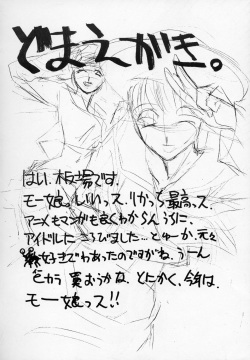 どまえがき。
はい、板場です。
モー娘、いいっス、りかっち最高っス。
アニメもマンガも良くわからんうちに、
アイドルにころびました…とゆーか、元々
好きでわあったのですがね、うーん
ピカラ買おうかな、とにかく、今年は、
モー娘っス!!